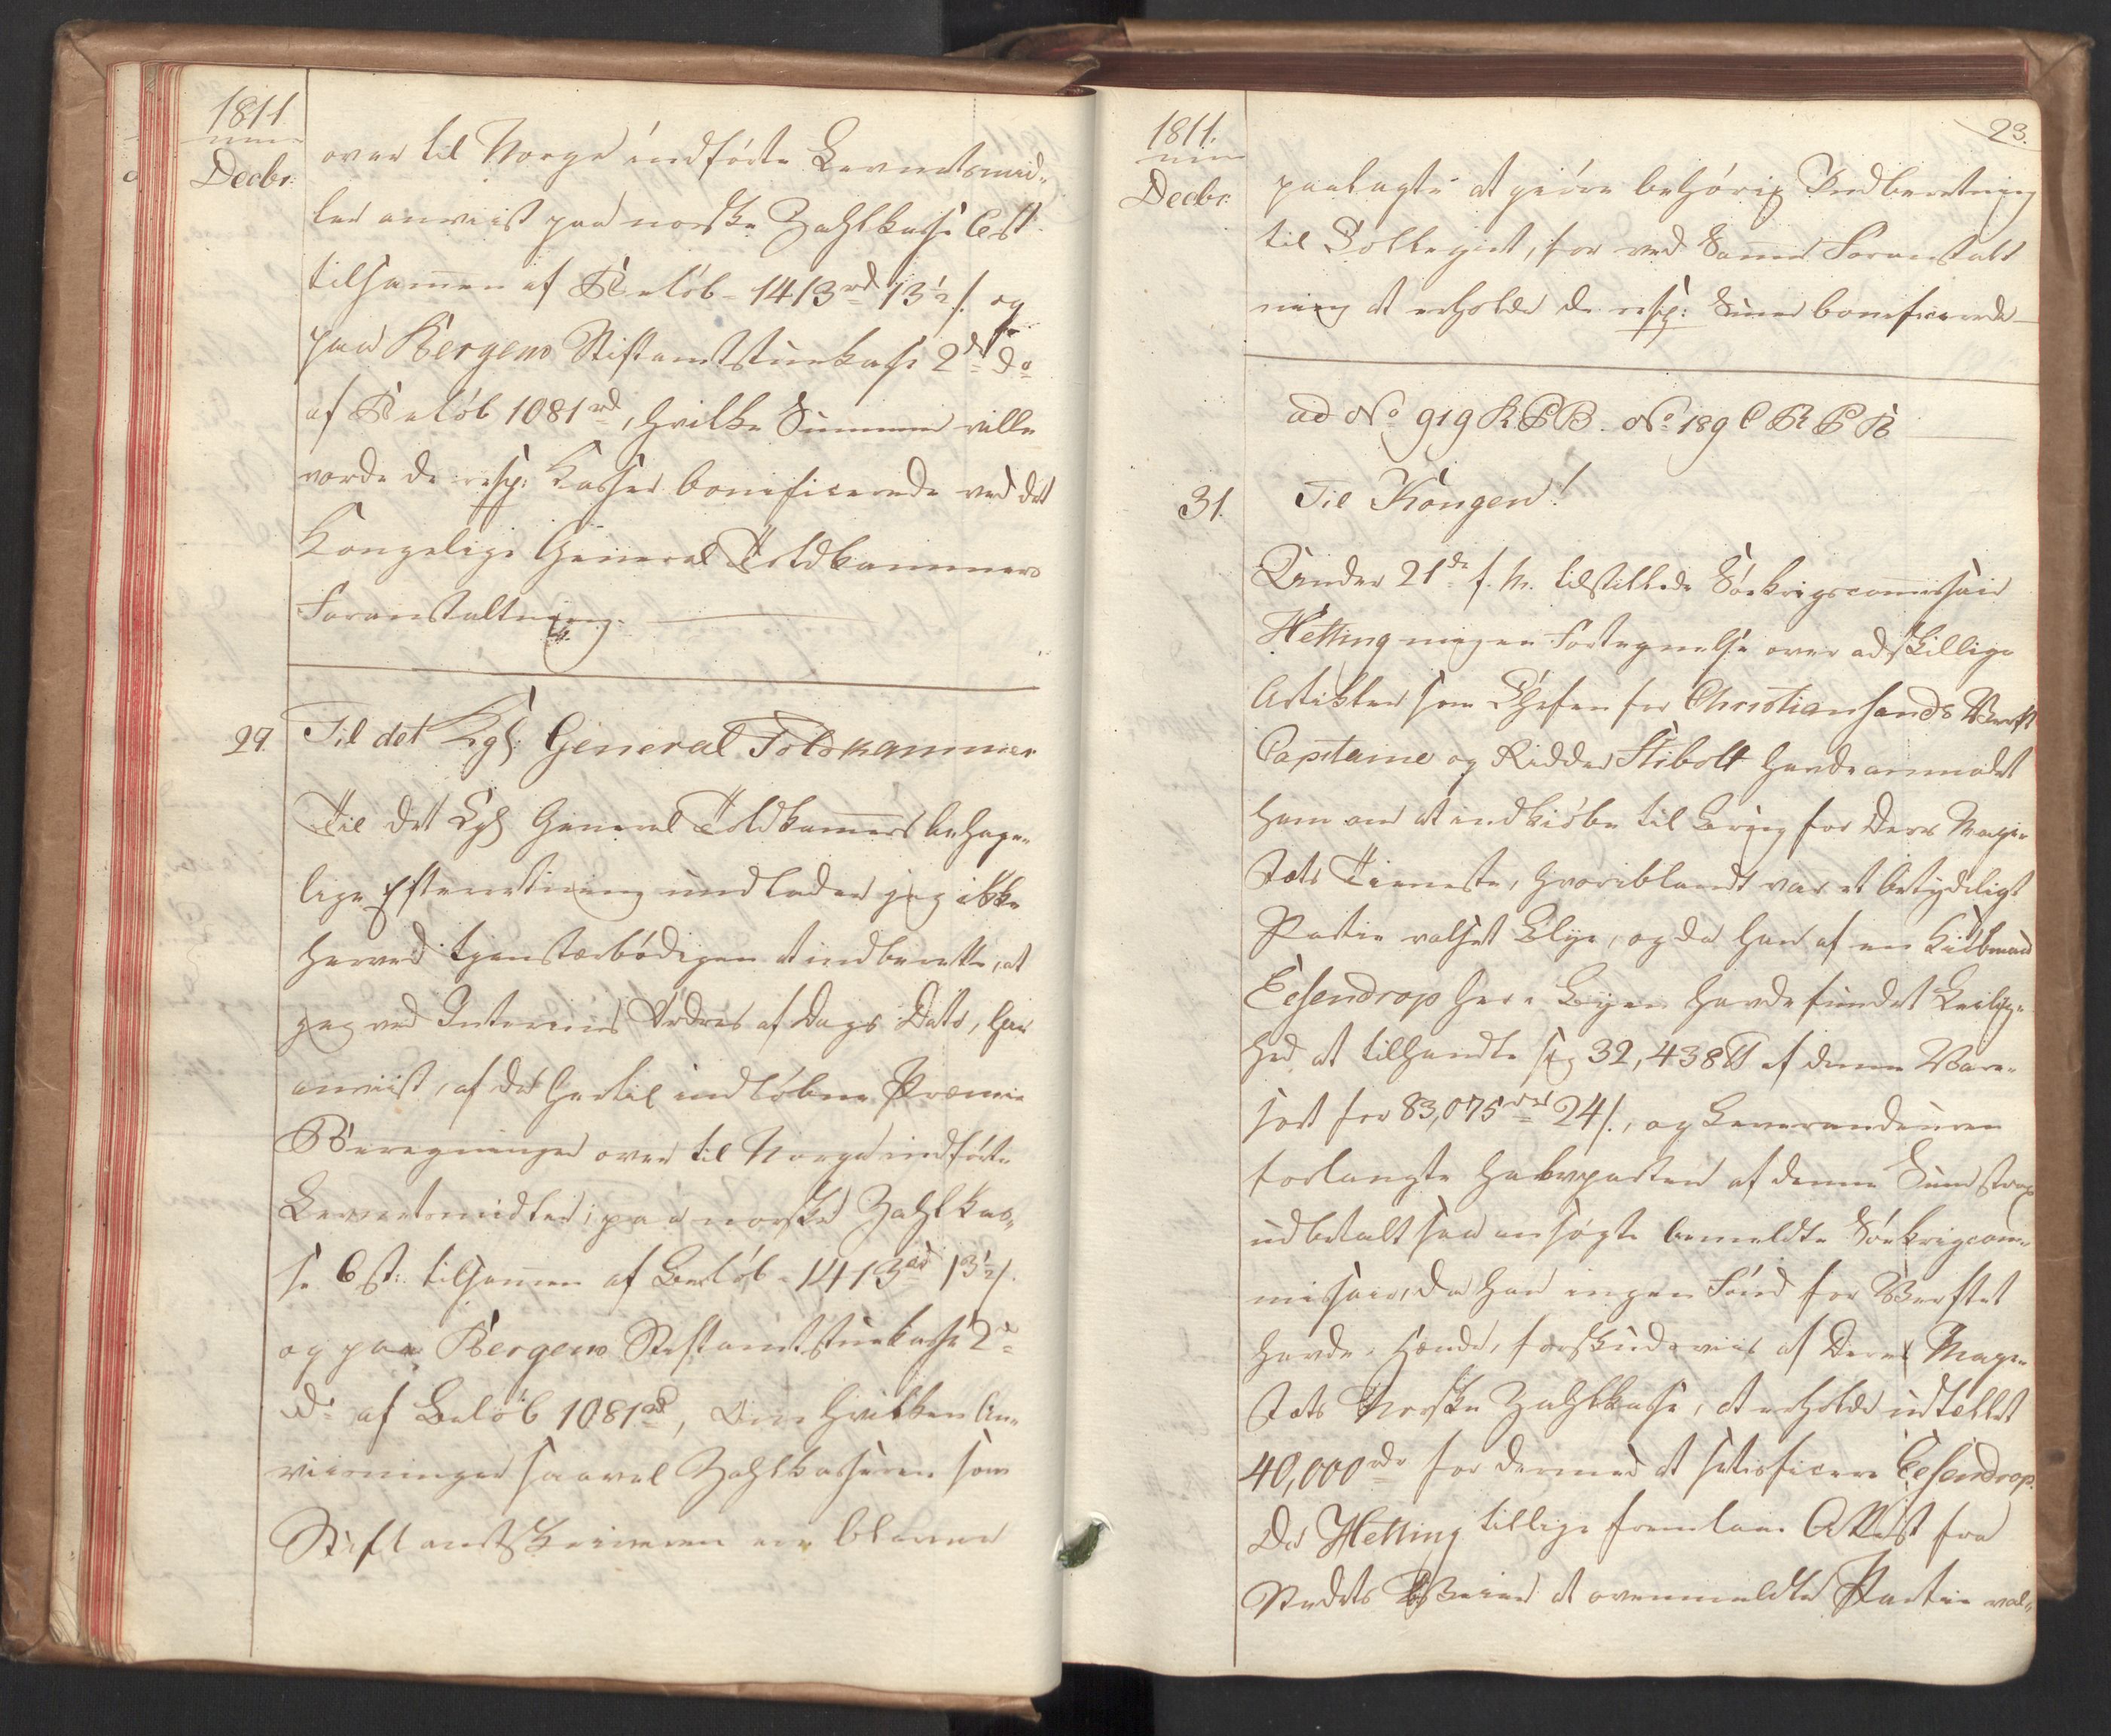 1811
Decbr.
over til Norge indførte Levnetsmid„
ler anviist paa norske Zahlkasse 6 st.
tilsam̅en af Beløb - 1413rd 13½ s. og
paa Bergens Stiftamtstuekasse 2de do
af Beløb 1081rd, hvilke Summer ville
vorde de resp: Kasser bonificerede ved det
Kongelige General Toldkammers
Foranstaltning.
29. Til det Kgl. General Toldkammer
Til det Kgl General Toldkam̅ers behage„
lige Efterretning undlader jeg ikke
herved tjenstærbødigen at indberette, at
jeg ved Interims Ordres af Dags Dato, har
anviist, af de hertil indløbne Præmie
Beregninger over til Norge indførte
Levnetsmidler; paa norske Zahlkas„
se 6 st: tilsam̅en af Beløb - 1413rd 13½ s.
og paa Bergens Stiftamtstuekasse 2de
do af Beløb 1081rd, Om hvilken An„
viisninger saavel Zahlkasseren som
Stiftamtskriveren ere blevne
23.
1811.
Decbr.
paalagte at giøre behørig Indberetning
til Collegiet, for ved Sammes Foranstalt
ning at erholde de resp: Sum̅er bonificerede
ad No 919 R P B. No 189 C R P R
31. Til Kongen!
Under 21de f. M. tilstillede Søekrigscom̅issair
Hetting mig en Fortegnelse over adskillige
Artikler som Chefen for Christiansands Værft
Capitaine og Ridder Stibolt havde anmodet
ham om at indkiøbe til Brug for Deres Maje„
stæts Tieneste, hvoriblandt var et betydeligt
Partie valset Blye, og da han af en Kiøbmand
Eschendrop her i Byen havde fundet Leilig„
hed at tilhandle sig 32,438 ℔ af denne Vare„
sort for 83,075rd 24 s., og Leverandeuren
forlangte Halvparten af denne Sum strax
udbetalt saa ansøgte bemeldte Søekrigscom„
missair, da han ingen Fond for Værftet
havde i Hænde, forskudsviis af Deres Maje„
stæts Norske Zahlkasse, at erholde udtællet
40,000rdr for dermed at satisficere Eschendrop.
Da Hetting tillige fremlagde Attest fra
Stædets at ovenmeldte Partie val„